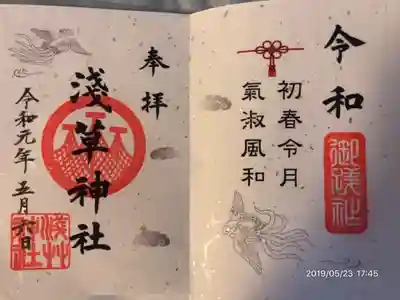 令和
初春令月
氣淑風和
御蹼社
奉拝
淺草神社
令和元年 五月六日
淺艸
神社
2019/05/23 17:45